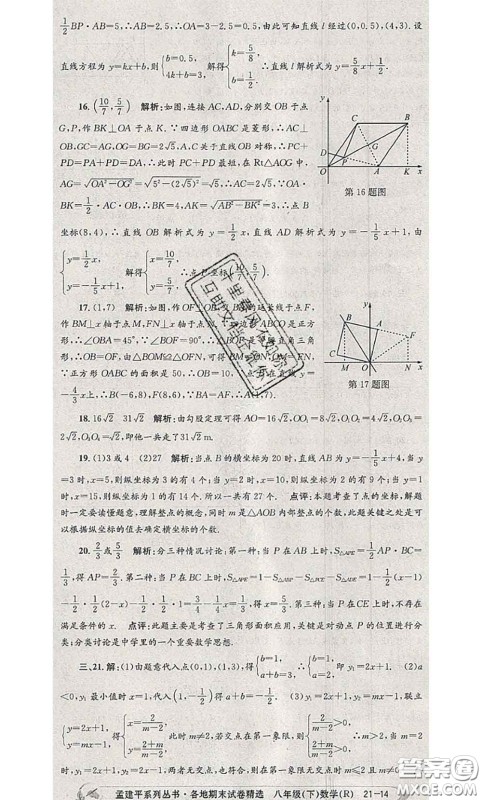 1/2 BP·AB=5,∴AB=2.5,∴OA=3-2.5=0.5,由此可知直线 l 经过(0,0.5),(4,3).设
直线方程为 y=kx+b,则{b=0.5, 4k+b=3, 解得{k=5/8, b=1/2. ∴直线 l 解析式为 y=5/8x+1/2.
16. (10/7, 5/7) 解析:如图,连接 AC,AD,分别交 OB 于点
G,P,作 BK⊥OA 于点 K.∵四边形 OABC 是菱形,∴AC⊥
OB,GC=AG,OG=BG=2√5,A,C 关于直线 OB 对称,∴PC
+PD=PA+PD=DA,∴此时 PC+PD 最短,在 Rt△AOG 中,
AG=√(OA²-OG²)=√(5²-(2√5)²)=√5,∴AC=2√5,∵OA·
BK=1/2·AC·OB,∴BK=4,AK=√(AB²-BK²)=3,∴点 B
第 16 题图
坐标(8,4),∴直线 OB 解析式为 y=1/2x,直线 AD 解析式为 y=-1/5x+1,由
{y=1/2x, y=-1/5x+1, 解得{x=10/7, y=5/7. ∴点 P 坐标(10/7, 5/7).
17. (1,7) 解析:如图,作 OF⊥OB 交 BA 的延长线于点 F,
作 BM⊥x 轴于点 M,FN⊥x 轴于点 N.∵四边形 ABCO 是正方形,
∴∠OBA=45°,∠BOF=90°,∴△BOF 是等腰直角三角形,
∴OB=OF,由△BOM≌△OFN,可得
第 17 题图
正方形 OABC 的面积是 50,∴OB=10,
4/3x 上,∴B(-6,8),F(8,6),∵BA=AF,∴A(1,7).
18. 16√2 31√2 解析:由勾股定理可得 AO=16√2,OO₁=8√2,O₁O₂=4√2,O₂O₃
=2√2,O₃O₄=√2,即他一共走了31√2 m.
19. (1)3或4 (2)27 解析:当点 B 的横坐标为 20 时,直线 AB 为 y=-1/5x+4,当 y
=3 时,x=5,则纵坐标为 3 的有 4 个;当 y=2 时,x=10,则纵坐标为 2 的有 9 个;当 y=1
时,x=15,则纵坐标为 1 的有 14 个.所以一共有 27 个. 点评:本题考查点的坐标,解题
时一定要读懂题意,理解题中的概念,同时 m 是△AOB 内部整点的个数,此题关键之处是可
以根据纵坐标的值去确定横坐标的个数.
20. 2/3或5/3 解析:分三种情况讨论:第一种:当 P 在 AB 上时,S△APC=1/2 AP·BC=
1/3,得 AP=2/3.第二种:当 P 在 BC 上时,S△APE=1-S△ABP-S△PCE-S△ADE=1-1/2(x-1)
-1/2·1/2(2-x)-1/2·1·1/2=1-3/4-1/4x=1/3,得 x=5/3.第三种:当 P 在 CE 上时,不存在
满足条件的 x. 点评:此题主要是考查了三角形面积应用,关键是对动点 P 的位置进行分
类;分类讨论是中学里的一个重要数学思想.
三、21.解:(1)由题意代入点(0,1),(1,3),得{b=1, a+b=3, ∴{b=1, a=2, 即 y₁=2x+1. (2)a
<0,y₁ 随 x 的增大而减小,得 -1/2>y₁>-1. (3)y₁=2x+1,y₂=mx-1,联立
{y=2x+1, y=mx-1, 得{x=2/(m-2), y=(2+m)/(m-2). 此时 m≠2,若交点在第一象限,则{2/(m-2)>0, (2+m)/(m-2)>0, ∴m
孟建平系列丛书·各地期末试卷精选 八年级(下)数学(R) 21-14